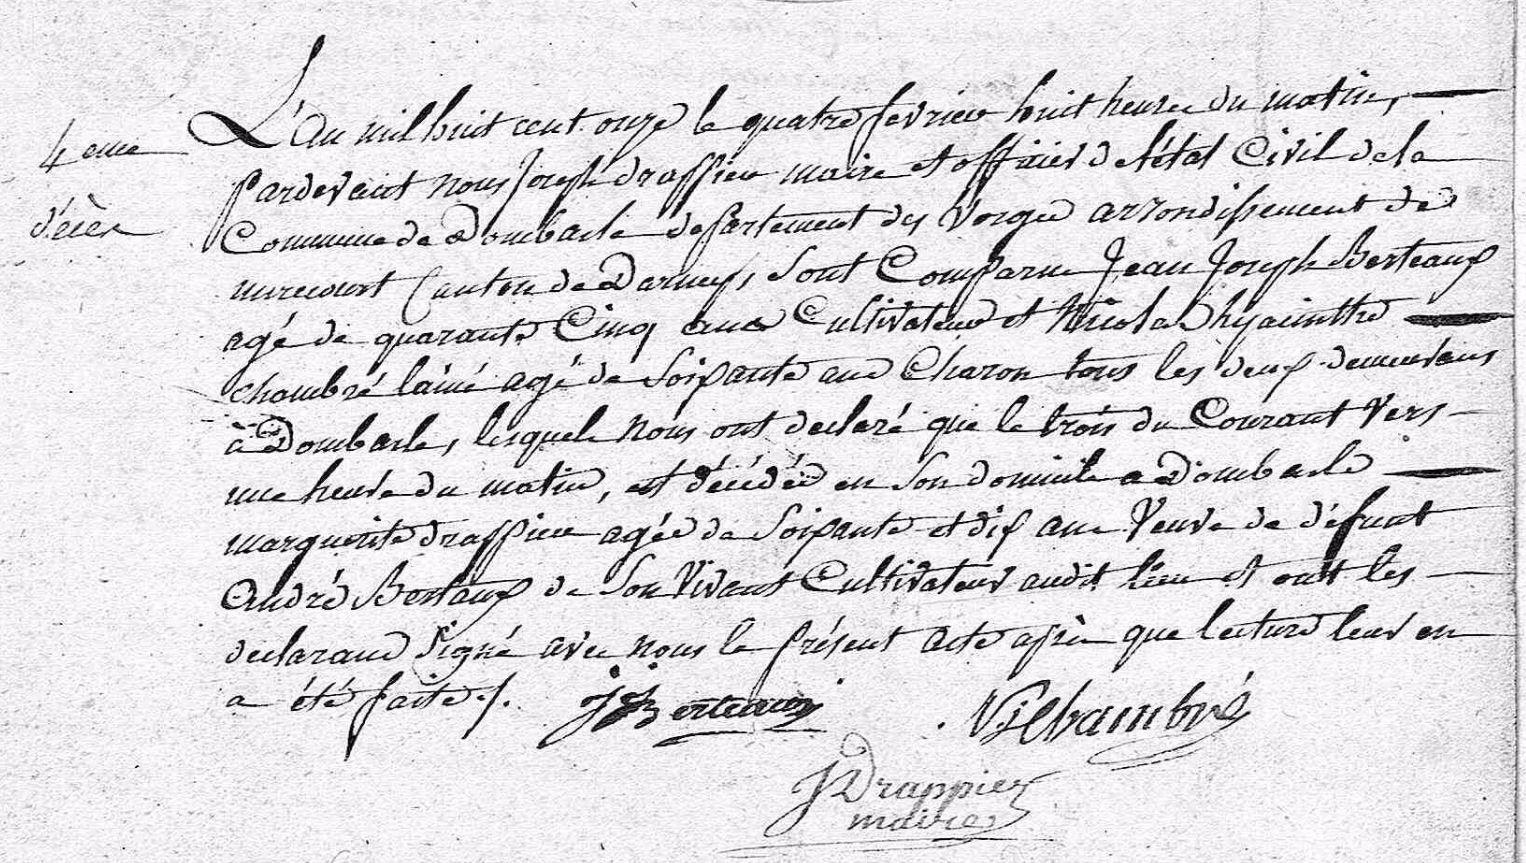 L'an mil huit cent onze le quatre fevrier huit heures du matin,
4eme
pardevant nous Joseph drappier maire et officier de l'état Civil de la
décès
Commune de Dombasle departement des Vosges arrondissement de
mirecourt Canton de Darney, sont Comparu Jean Joseph Berteaux
agé de quarante Cinq ans Cultivateur et Nicolas hyacinthe
chambré l'ainé agé de soixante ans Charon tous les deux demeurans
à Dombasle, lesquels nous ont declaré que le trois du Courant vers
une heure du matin, est décédée en son domicile a Dombasle
marguerite drappier agée de soixante et dix ans Veuve de défunt
André Bertaux de son Vivant Cultivateur audit lieu et ont les
declarans signé avec nous le présent acte après que lecture leur en
a été faite ./.
JJBerteaux
NhChambré
JDrappier
maire